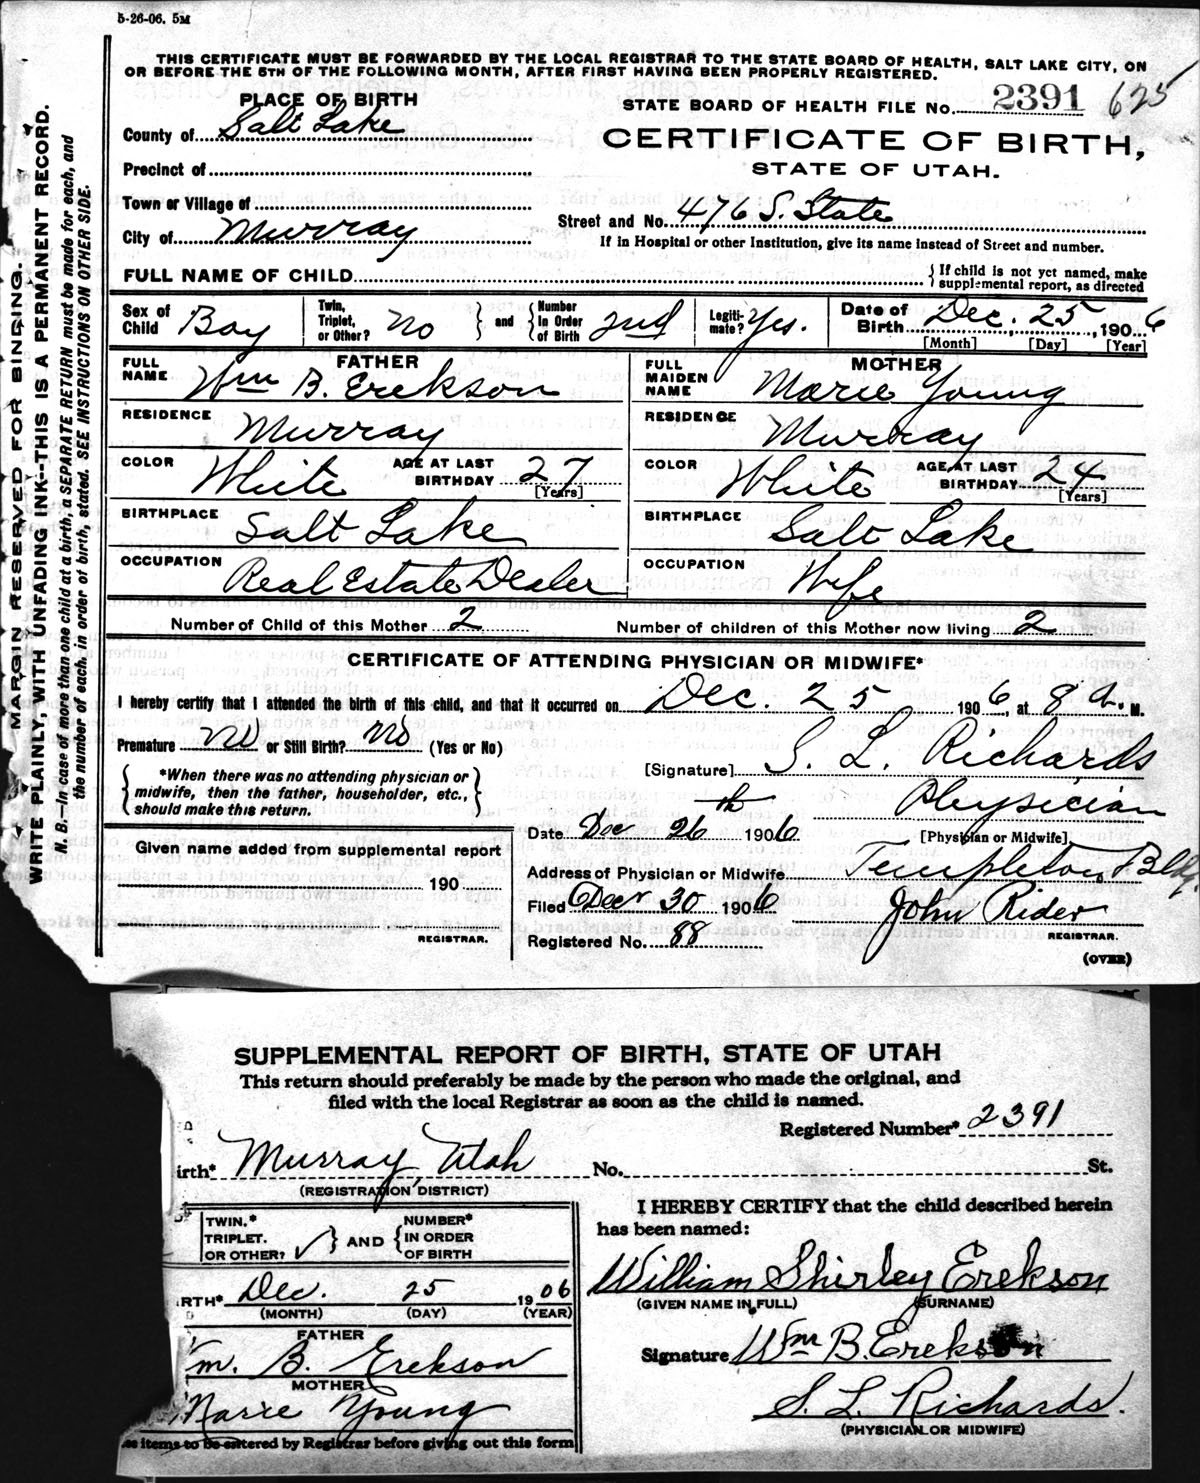 5-26-06. 5M
THIS CERTIFICATE MUST BE FORWARDED BY THE LOCAL REGISTRAR TO THE STATE BOARD OF HEALTH, SALT LAKE CITY, ON
OR BEFORE THE 5TH OF THE FOLLOWING MONTH, AFTER FIRST HAVING BEEN PROPERLY REGISTERED.
MARGIN RESERVED FOR BINDING.
WRITE PLAINLY, WITH UNFADING INK--THIS IS A PERMANENT RECORD.
N. B.—In case of more than one child at a birth, a SEPARATE RETURN must be made for each, and
the number of each, in order of birth, stated. SEE INSTRUCTIONS ON OTHER SIDE.
PLACE OF BIRTH
County of Salt Lake
Precinct of
Town or Village of
City of Murray
STATE BOARD OF HEALTH FILE No. 2391 625
CERTIFICATE OF BIRTH,
STATE OF UTAH.
Street and No. 476 S. State
If in Hospital or other Institution, give its name instead of Street and number.
FULL NAME OF CHILD
If child is not yet named, make
supplemental report, as directed
Sex of Child Boy
Twin, Triplet, or Other? No
and
Number in Order of Birth 2nd
Legitimate? Yes.
Date of Birth Dec. 25, 1906
[Month] [Day] [Year]
FATHER
FULL NAME Wm B. Erekson
RESIDENCE Murray
COLOR White AGE AT LAST BIRTHDAY 27
[Years]
BIRTHPLACE Salt Lake
OCCUPATION Real Estate Dealer
MOTHER
FULL MAIDEN NAME Marie Young
RESIDENCE Murray
COLOR White AGE AT LAST BIRTHDAY 24
[Years]
BIRTHPLACE Salt Lake
OCCUPATION Wife
Number of Child of this Mother 2 Number of children of this Mother now living 2
CERTIFICATE OF ATTENDING PHYSICIAN OR MIDWIFE*
I hereby certify that I attended the birth of this child, and that it occurred on Dec. 25 1906, at 8 a. M.
Premature No or Still Birth? No (Yes or No)
*When there was no attending physician or
midwife, then the father, householder, etc.,
should make this return.
[Signature] S. L. Richards
Physician
[Physician or Midwife]
Given name added from supplemental report
190
REGISTRAR.
Date Dec 26th 1906
Address of Physician or Midwife Templeton Bldg.
Filed Dec 30 1906 John Rider
REGISTRAR.
Registered No. 88
(OVER)
SUPPLEMENTAL REPORT OF BIRTH, STATE OF UTAH
This return should preferably be made by the person who made the original, and
filed with the local Registrar as soon as the child is named.
Registered Number* 2391
irth* Murray, Utah No. St.
(REGISTRATION DISTRICT)
TWIN.*
TRIPLET.
OR OTHER? ✓ AND
NUMBER*
IN ORDER
OF BIRTH
IRTH* Dec. 25 1906
(MONTH) (DAY) (YEAR)
FATHER
m. B. Erekson
MOTHER
Marie Young
se items to be entered by Registrar before giving out this form
I HEREBY CERTIFY that the child described herein
has been named:
William Shirley Erekson
(GIVEN NAME IN FULL) (SURNAME)
Signature Wm B. Erekson
S. L. Richards.
(PHYSICIAN OR MIDWIFE)